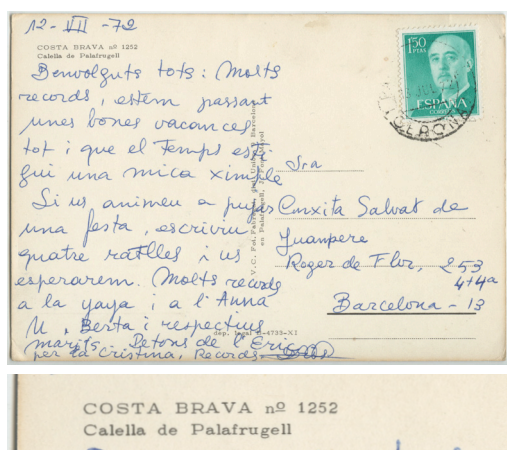 12-VII-72
COSTA BRAVA nº 1252
Calella de Palafrugell
Benvolguts tots: Molts
records, estem passant
unes bones vacances
tot i que el Temps esti-
gui una mica ximple
Si us animeu a pujar
una festa, escriviu
quatre ratlles i us
esperarem. Molts records
a la yaya i a l'Anna
M, Berta i respectius
marits. Petons de l'Eric
per la Cristina, Records
dep. legal B-4739-XI
1'50
PTAS
ESPAÑA
CORREOS
JUL
Sra
Cinxita Salvat de
Juanpere
Roger de Flor, 253
4t 4a
Barcelona - 13
COSTA BRAVA nº 1252
Calella de Palafrugell